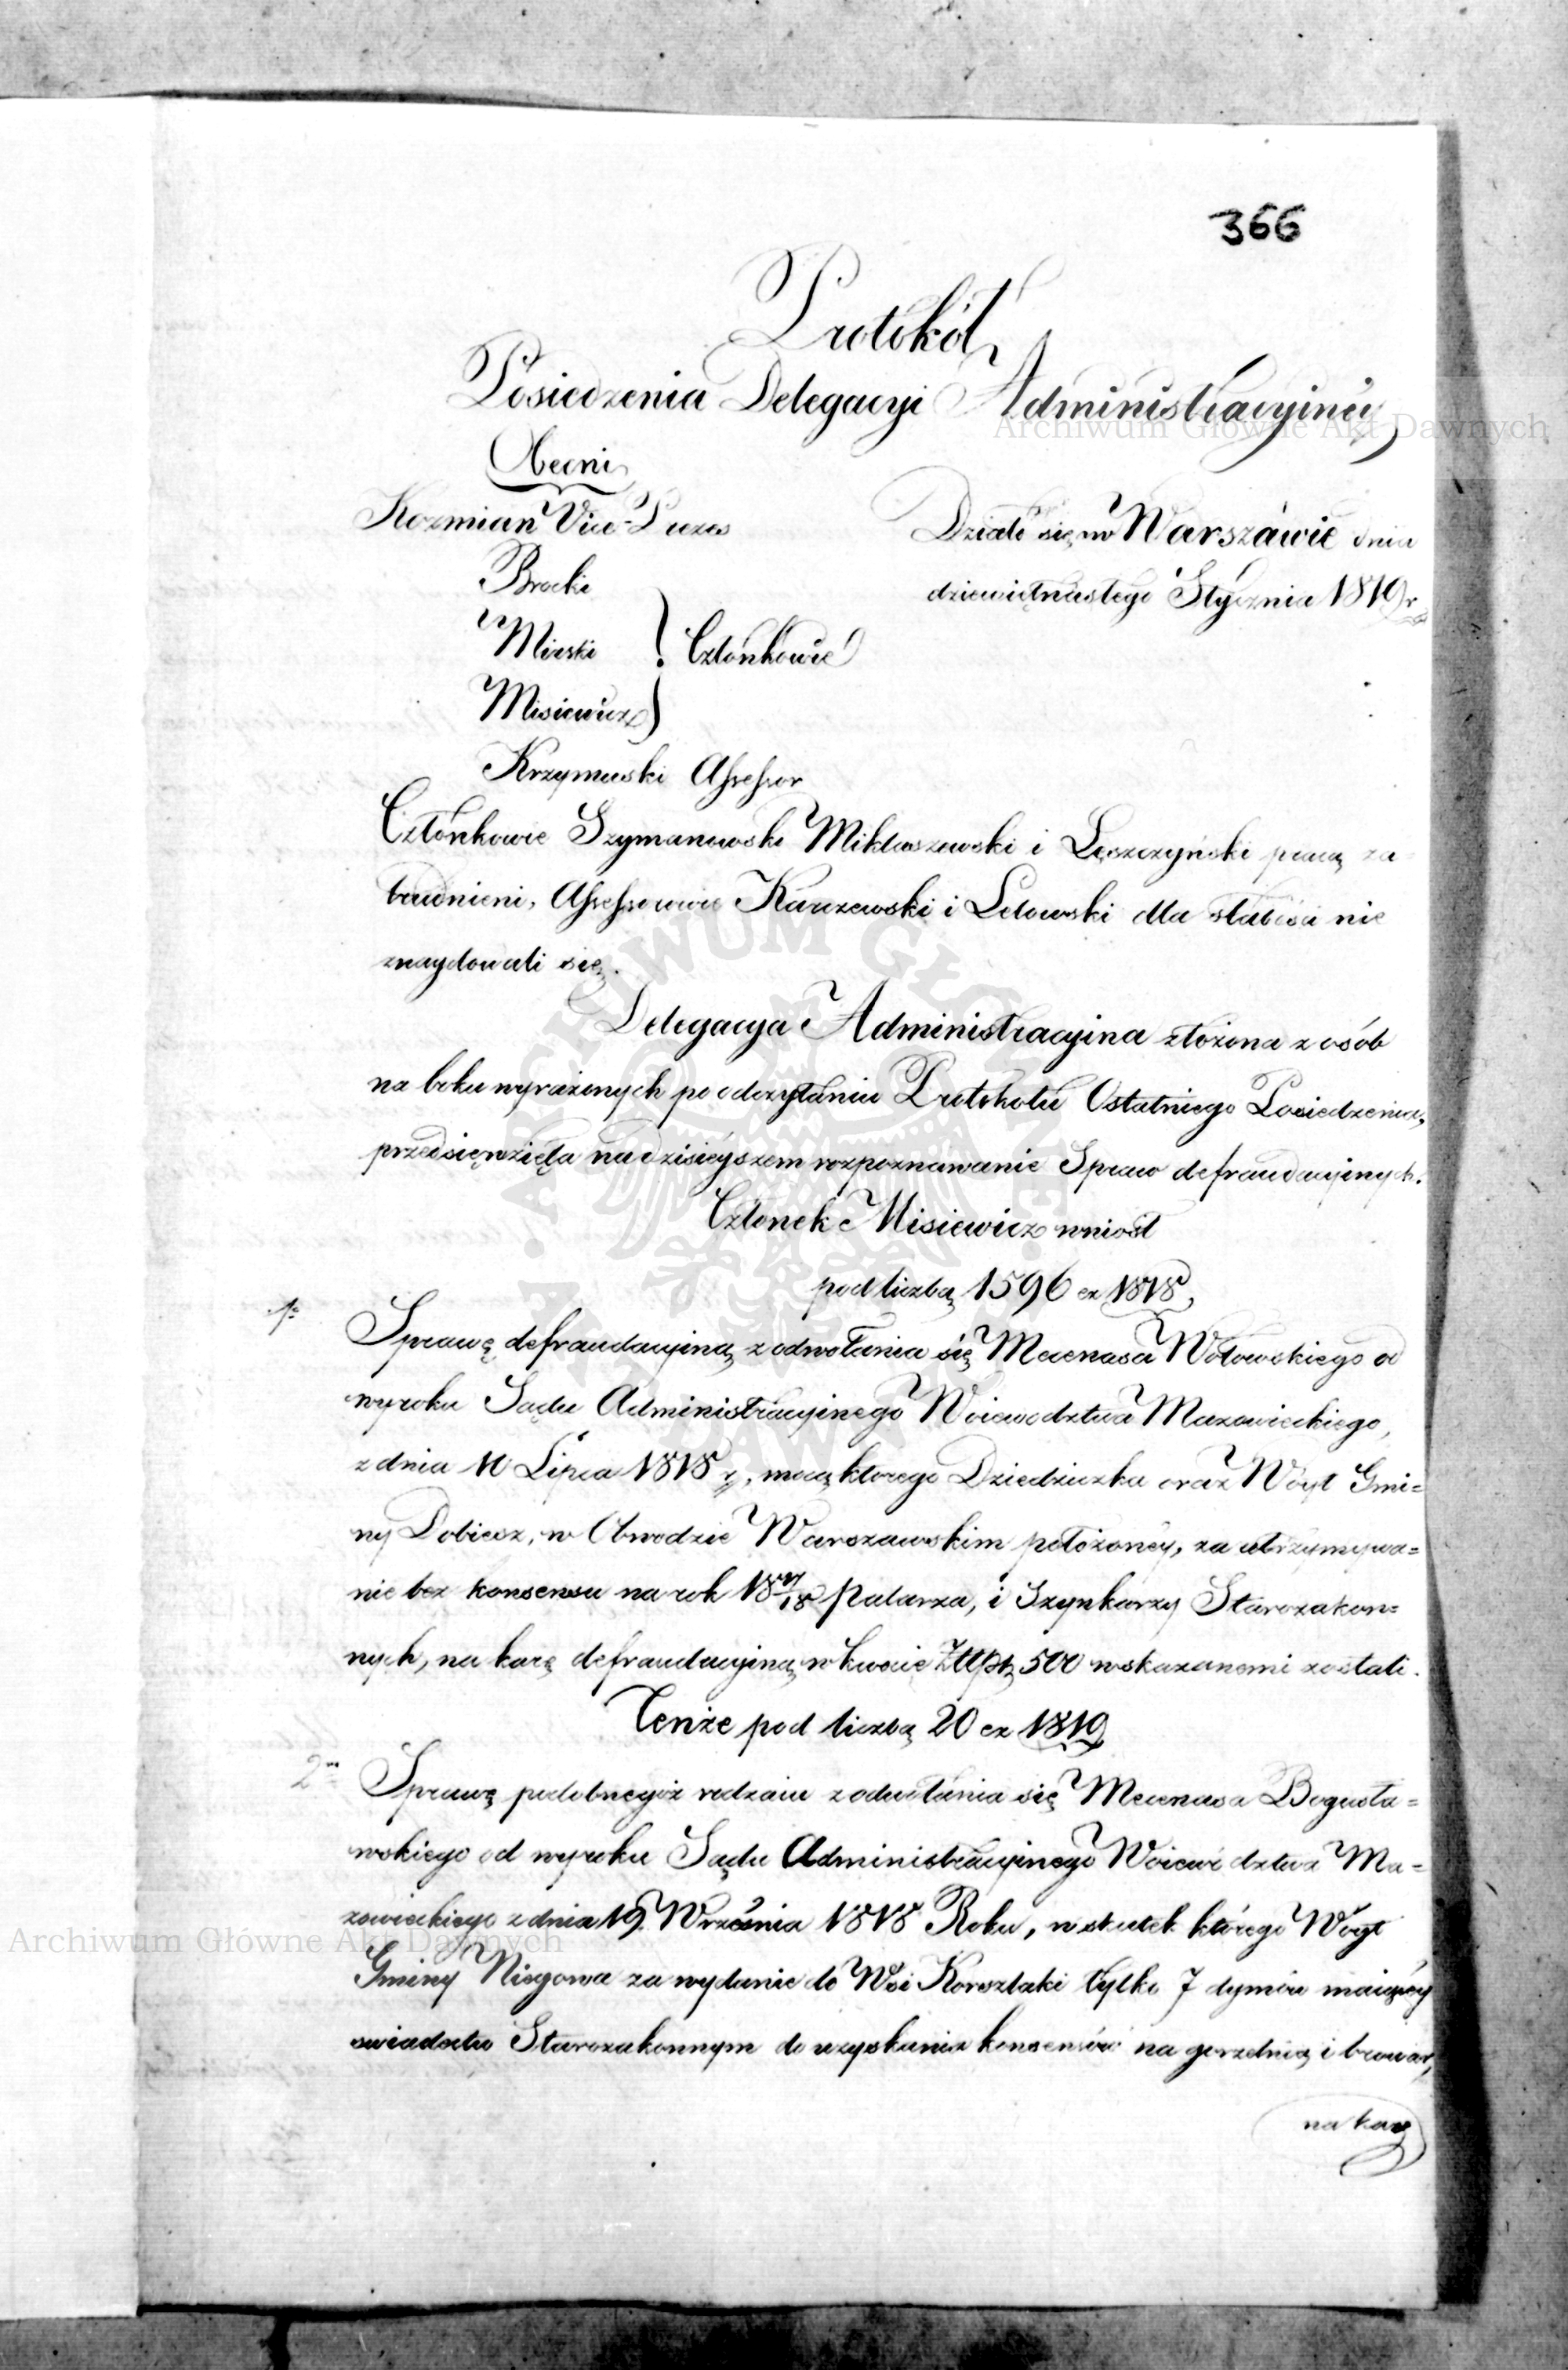 366
Protokół
Posiedzenia Delegacyi Administracyinéy
Obecni
Kozmian Vice-Prezes
Działo się w Warszawie dnia
dziewiętnastego Stycznia 1819 r
Brocki
Mirski
Członkowie
Misiewicz
Krzymuski Assessor
Członkowie Szymanowski Miklaszewski i Lęszczyński pracą za-
trudnieni, Assessorowie Karczewski i Letowski dla słabości nie
znaydowali się.
Delegacya Administracyina złożona z osób
na boku wyrażonych po odczytaniu Protokołu Ostatniego Posiedzenia,
przedsięwzięła na dzisieyszem rozpoznawanie Spraw defraudacyinych.
Członek Misiewicz wniosł
pod liczbą 1596 ex 1818,
1º
Sprawę defraudacyiną z odwołania się Mecenasa Wołowskiego od
wyroku Sądu Administracyinego Woiewodztwa Mazowieckiego,
z dnia 10 Lipca 1818 r, mocą ktorego Dziedziczka oraz Wóyt Gmi=
ny Dobiesz, w Obwodzie Warszawskim położonéy, za utrzymywa=
nie bez konsensu na rok 1817/18 Palarza, i Szynkarzy Starozakon=
nych, na karę defraudacyiną w kwocie Złtp 500 wskazanemi zostali.
Tenże pod liczbą 20 ex 1819
2º
Sprawę podobnegoż rodzaiu z odwołania się Mecenasa Bogusła=
wskiego od wyroku Sądu Administracyinego Woiewództwa Ma=
zowieckiego z dnia 19 Września 1818 Roku, w skutek którego Wóyt
Gminy Niegowa za wydanie do Wsi tylko 7 dymów maiącéy
swiadectw Starozakonnym do uzyskania konsensów na gorzelnią i browar,
na karę
Archiwum Główne Akt Dawnych
Archiwum Główne Akt Dawnych